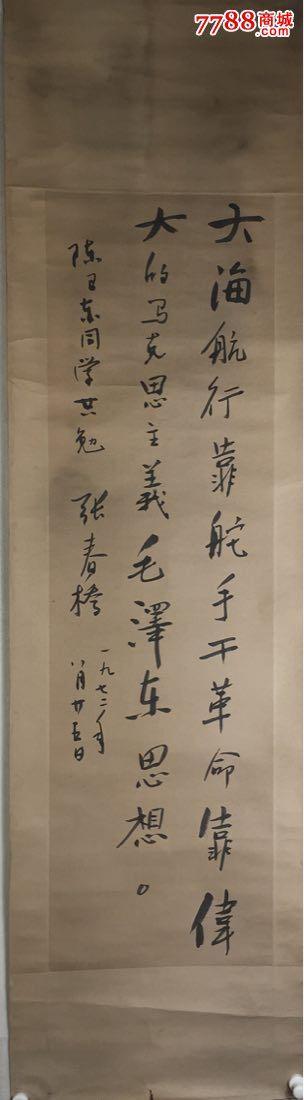 7788商城
.com
大海航行靠舵手干革命靠偉
大的马克思主義毛澤东思想。
陈卫东同学共勉 张春橋
一九七二年
八月廿五日